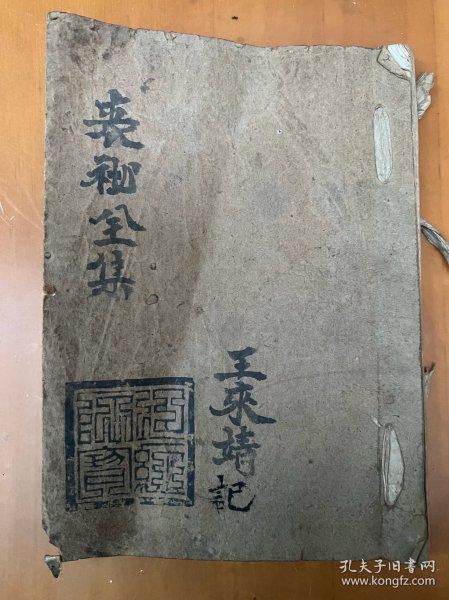 丧祕全集
王來靖記
道經師寶
孔夫子旧书网
www.kongfz.com